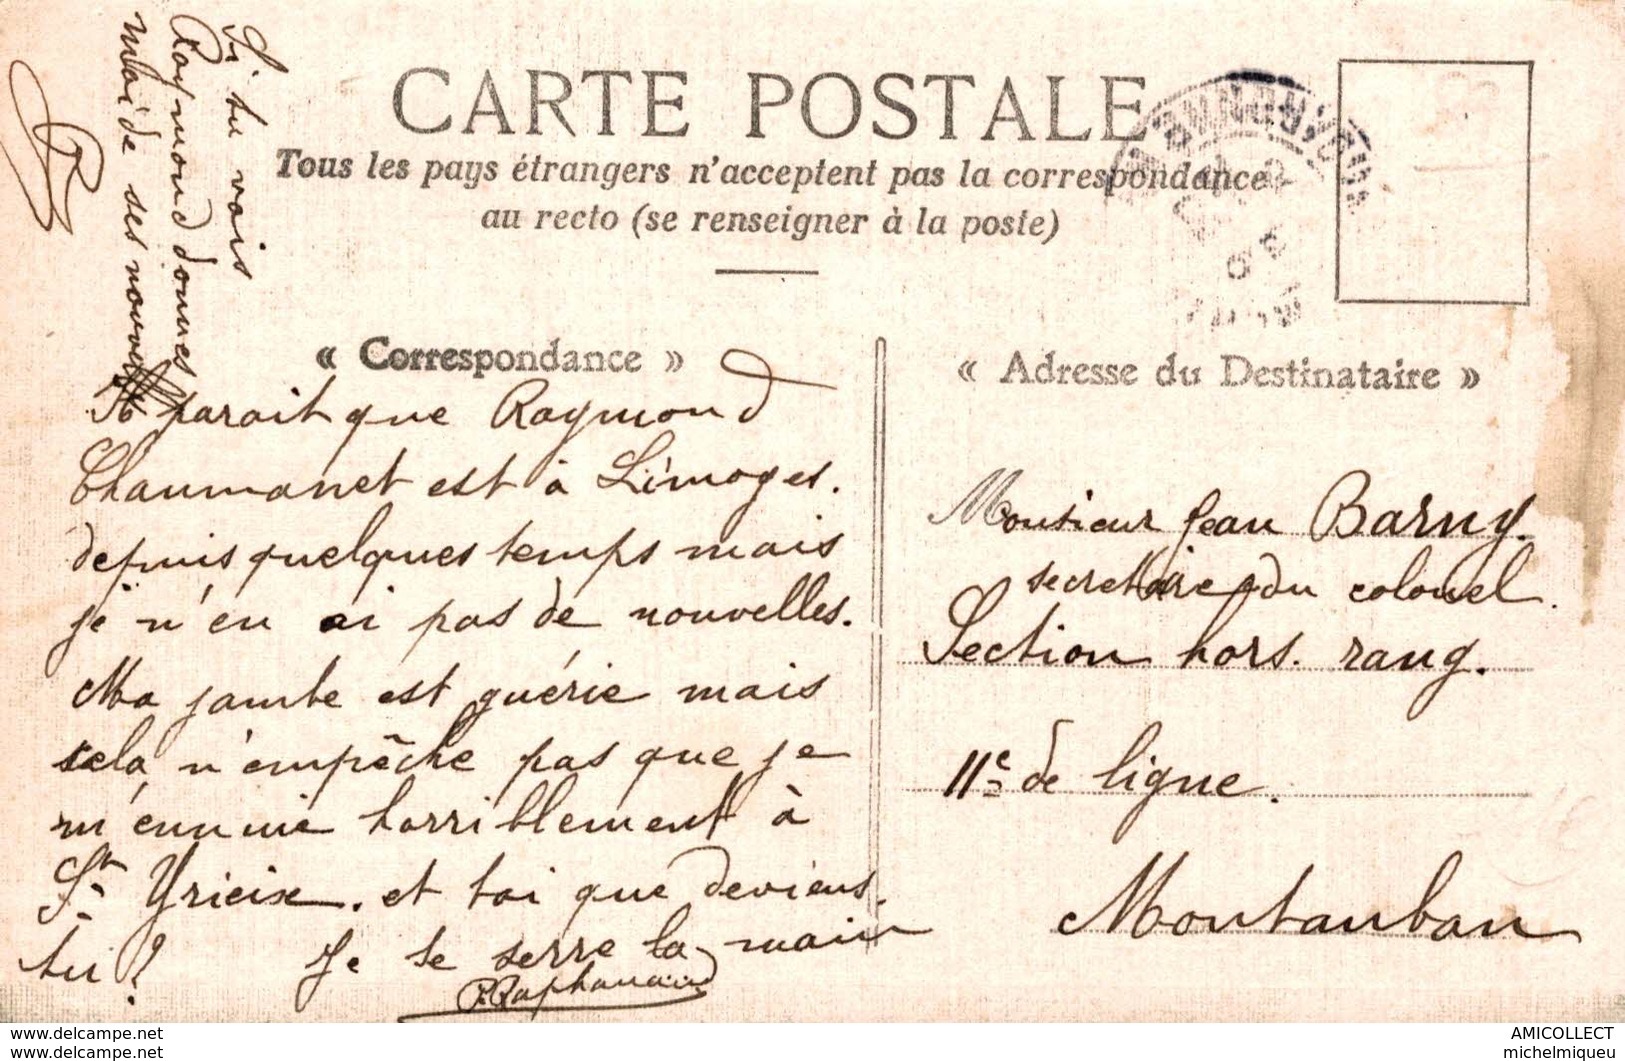 CARTE POSTALE
Tous les pays étrangers n'acceptent pas la correspondance
au recto (se renseigner à la poste)
« Correspondance »
Il parait que Raymond
Chaumanet est à Limoges.
depuis quelques temps mais
je n'en ai pas de nouvelles.
Ma jambe est guérie mais
cela n'empêche pas que je
m'ennuie horriblement à
St Yrieix. et toi que deviens.
tu ? Je te serre la main
P. Raphanaud
Si tu vois
Raymond donnes
moi de ses nouvelles
R
« Adresse du Destinataire »
Monsieur Jean Barny.
secretaire du colonel.
Section hors. rang.
11e de ligne.
Montauban
www.delcampe.net
www.delcampe.net
AMICOLLECT
michelmiqueu